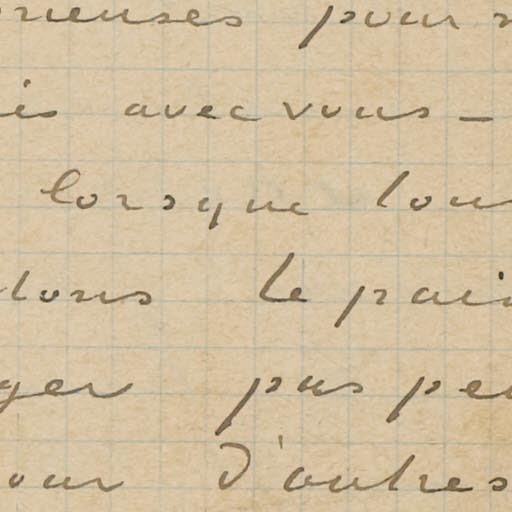 rieuses pour
is avec vous -
lorsque tou
tons le pain
ger pas pe
our d'autres